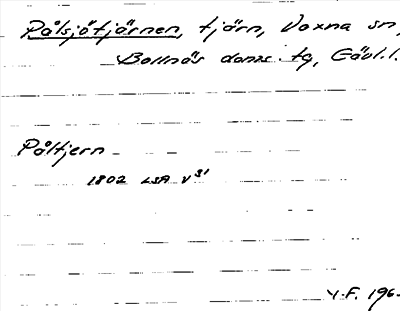 Pålsjötjärnen, tjärn, Voxna sn,
Bollnäs doms. tg, Gävl.l.
Påltjern
1802 LSA V31
Y.F. 196